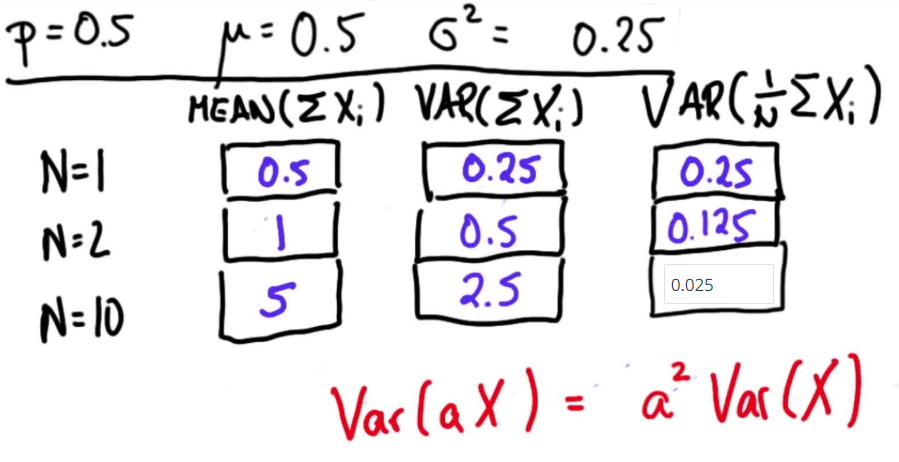 p = 0.5 μ = 0.5 σ² = 0.25
MEAN(ΣXᵢ) VAR(ΣXᵢ) VAR(1/N ΣXᵢ)
N=1 0.5 0.25 0.25
N=2 1 0.5 0.125
N=10 5 2.5 0.025
Var(aX) = a² Var(X)